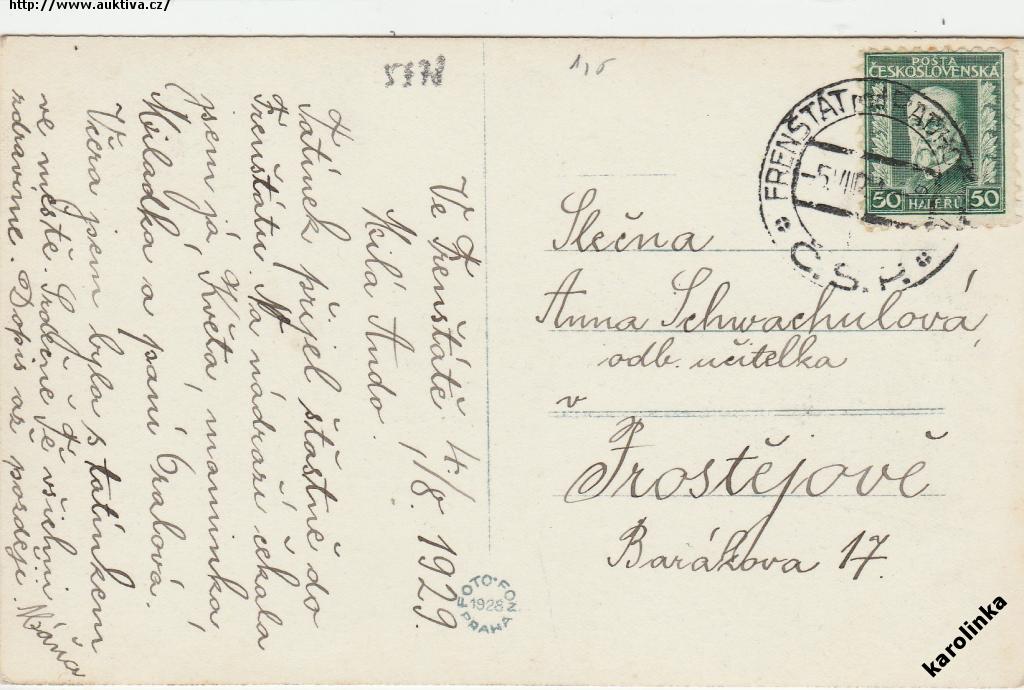 http://www.auktiva.cz/
5178
Ve Frenštátě 4./8. 1929.
Milá Ando.
Tatínek přijel šťastně do
Frenštátu. Na nádraží čekala
jsem já, Květa, maminka,
Miladka a paní Oralová.
Včera jsem byla s tatínkem
ve městě. Srdečně Tě všichni
zdravíme. Dopis až později. Máňa
Slečna
Anna Schwachulová,
odb. učitelka
v
Prostějově
Barákova 17.
POŠTA
ČESKOSLOVENSKÁ
50 HALÉŘŮ 50
FRENŠTÁT
Č.S.P.
FOTO-FON
1928
PRAHA
karolinka